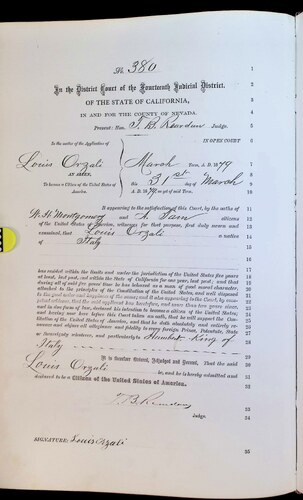 No. 380
In the District Court of the Fourteenth Judicial District,
OF THE STATE OF CALIFORNIA,
IN AND FOR THE COUNTY OF NEVADA.
Present: Hon. T. B. Reardon Judge.
In the matter of the Application of
Louis Orzali
AN ALIEN,
To become a Citizen of the United States of America.
IN OPEN COURT
March Term, A. D. 1879
this 31st day of March
A. D. 1879, as yet of said Term.
It appearing to the satisfaction of this Court, by the oaths of
W. H. Montgomery and A. citizens
of the United States of America, witnesses for that purpose, first duly sworn and
examined, that Louis Orzali a native
of Italy
has resided within the limits and under the jurisdiction of the United States five years
at least, last past, and within the State of California for one year, last past; and that
during all of said five years' time he has behaved as a man of good moral character,
attached to the principles of the Constitution of the United States, and well disposed
to the good order and happiness of the same; and it also appearing to the Court, by com-
petent evidence, that the said applicant has heretofore, and more than two years since,
and in due form of law, declared his intention to become a citizen of the United States;
and having now here before this Court taken an oath, that he will support the Con-
stitution of the United States of America, and that he doth absolutely and entirely re-
nounce and abjure all allegiance and fidelity to every foreign Prince, Potentate, State
or Sovereignty whatever, and particularly to Humbert King of
Italy
It is therefore Ordered, Adjudged and Decreed, That the said
Louis Orzali be, and he is hereby admitted and
declared to be a Citizen of the United States of America.
T. B. Reardon
Judge.
SIGNATURE: Louis Orzali
1
2
3
4
5
6
7
8
9
10
11
12
13
14
15
16
17
18
19
20
21
22
23
24
25
26
27
28
29
30
31
32
33
34
35